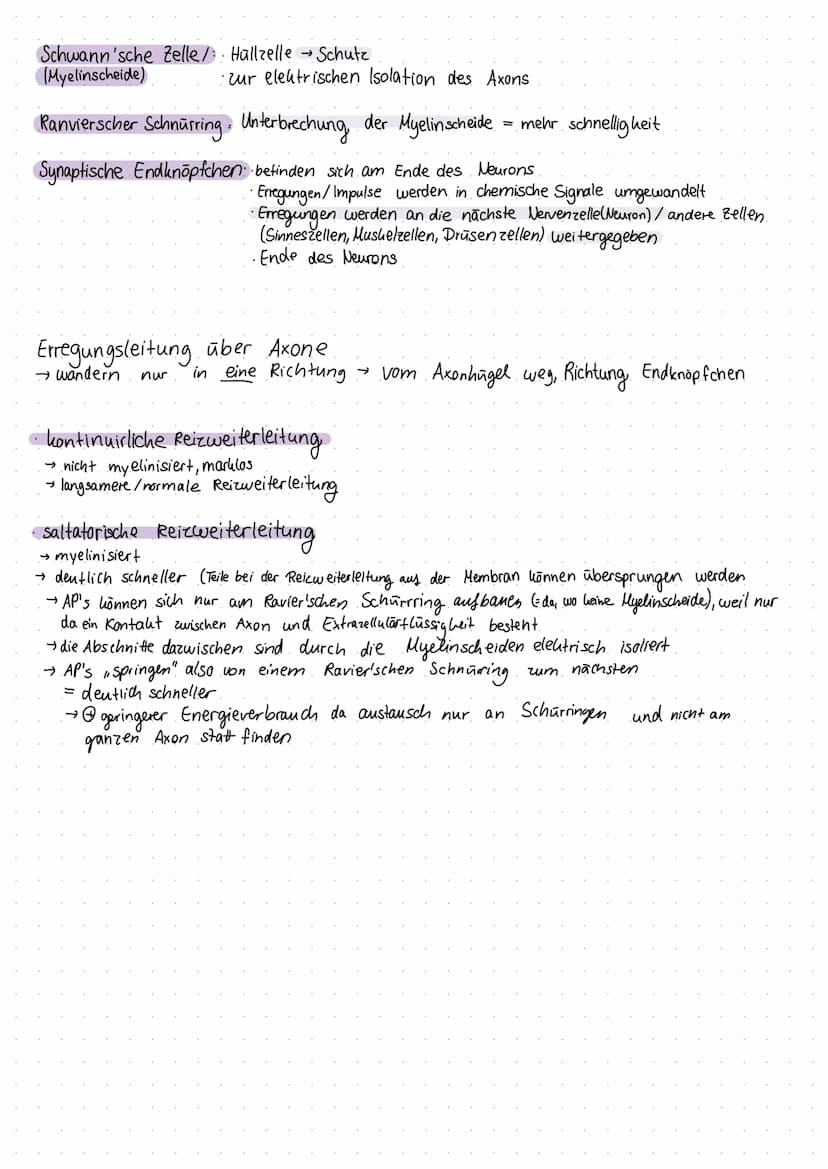 Schwann'sche Zelle/: · Hüllzelle → Schutz
(Myelinscheide) · zur elektrischen Isolation des Axons
Ranvierscher Schnürring: Unterbrechung der Myelinscheide = mehr schnelligkeit
Synaptische Endknöpfchen: · befinden sich am Ende des Neurons
· Erregungen/Impulse werden in chemische Signale umgewandelt
· Erregungen werden an die nächste Nervenzelle(Neuron)/ andere Zellen
(Sinneszellen, Muskelzellen, Drüsenzellen) weitergegeben
· Ende des Neurons
Erregungsleitung über Axone
→ wandern nur in eine Richtung → vom Axonhügel weg, Richtung Endknöpfchen
· kontinuirliche Reizweiterleitung
→ nicht myelinisiert, marklos
→ langsamere/normale Reizweiterleitung
· saltatorische Reizweiterleitung
→ myelinisiert
→ deutlich schneller (Teile bei der Reizweiterleitung aus der Membran können übersprungen werden
→ AP's können sich nur am Ravier'schen Schürrring aufbauen (=da, wo keine Myelinscheide), weil nur
da ein Kontakt zwischen Axon und Extrazellulärflüssigkeit besteht
→ die Abschnitte dazwischen sind durch die Myelinscheiden elektrisch isoliert
→ AP's „springen" also von einem Ravier'schen Schnürring zum nächsten
= deutlich schneller
→ ⊕ geringerer Energieverbrauch da austausch nur an Schürringen und nicht am
ganzen Axon statt finden